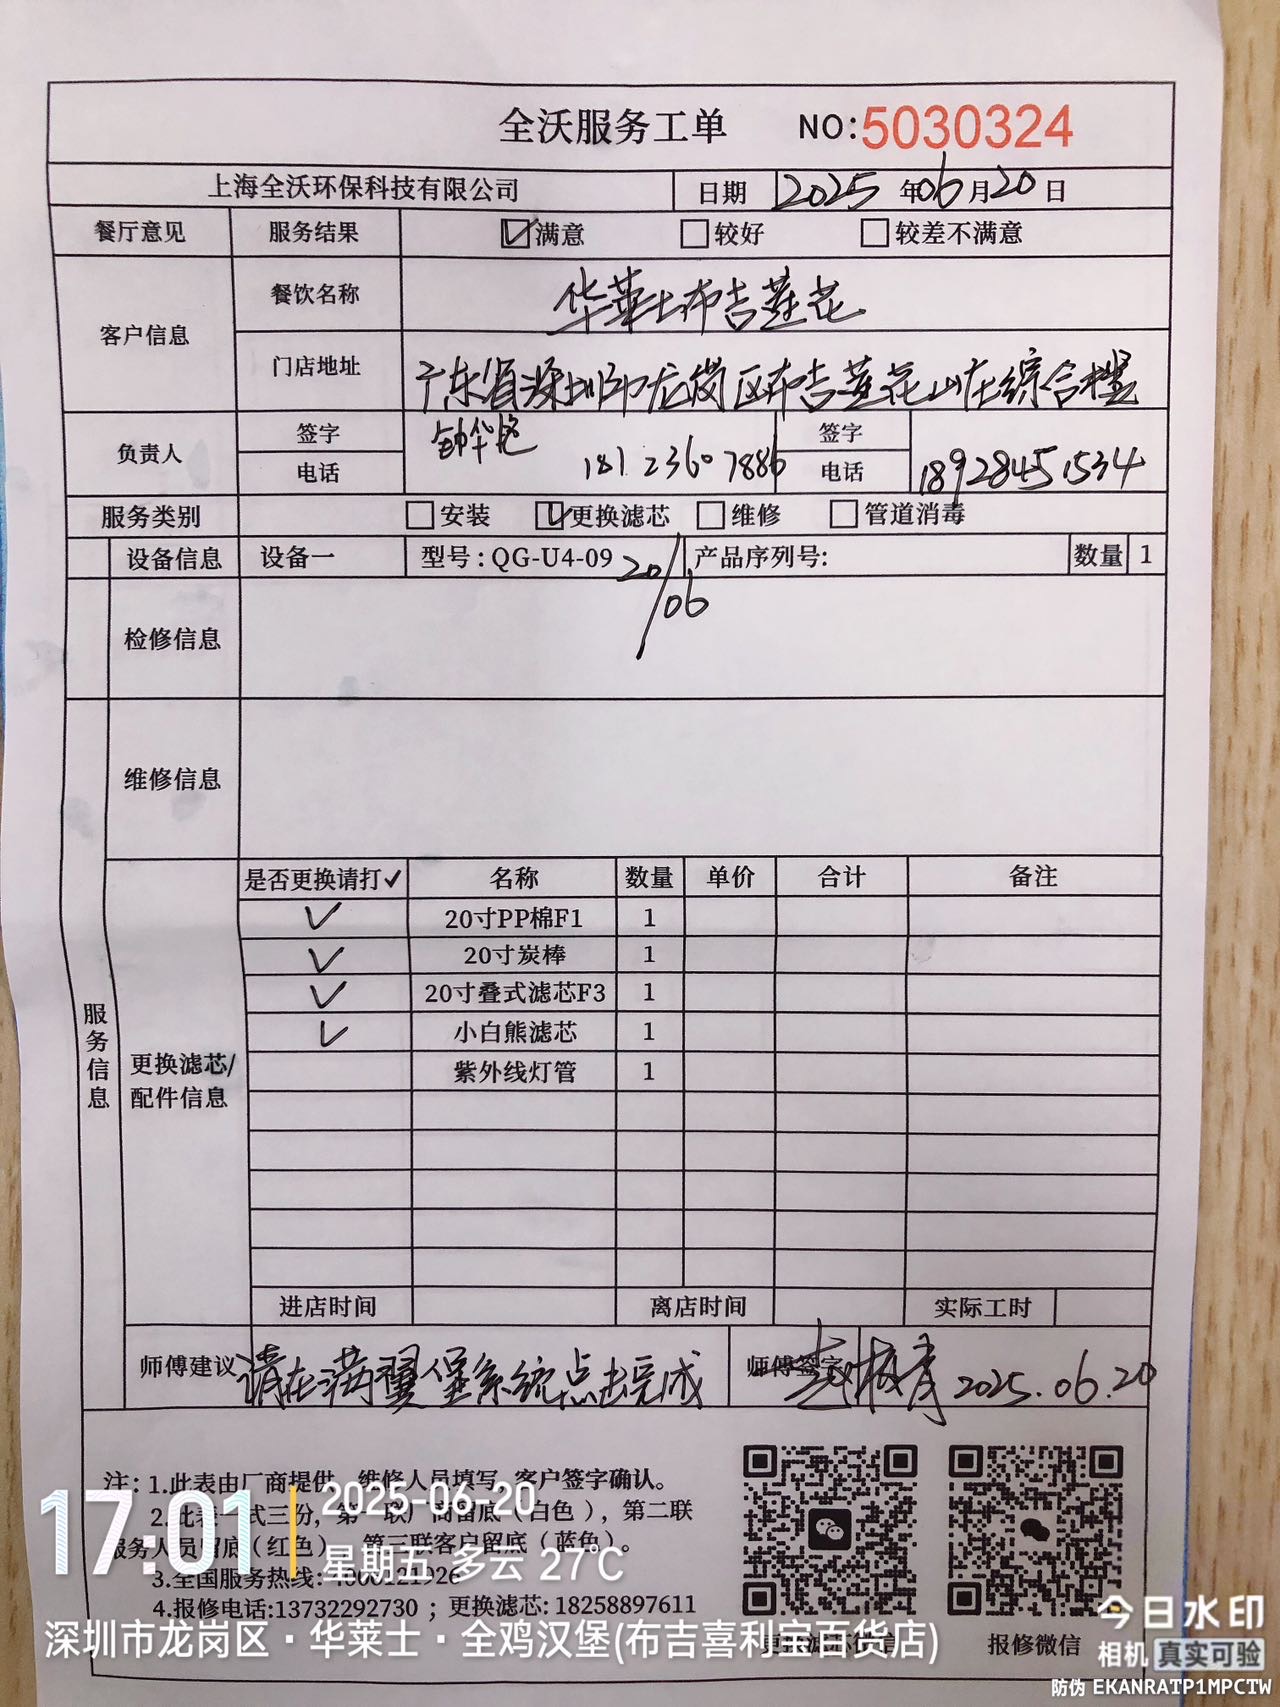 全沃服务工单 NO:5030324
上海全沃环保科技有限公司 日期 2025 年 06 月 20 日
餐厅意见 服务结果 满意 较好 较差不满意
客户信息 餐饮名称 华莱士布吉莲花
门店地址 广东省深圳市龙岗区布吉莲花山庄综合楼
负责人 签字 签字
电话 18123607886 电话 18928451534
服务类别 安装 更换滤芯 维修 管道消毒
设备信息 设备一 型号:QG-U4-09 产品序列号: 数量 1
20/06
检修信息
维修信息
服务信息
更换滤芯/
配件信息
是否更换请打✓ 名称 数量 单价 合计 备注
✓ 20寸PP棉F1 1
✓ 20寸炭棒 1
✓ 20寸叠式滤芯F3 1
✓ 小白熊滤芯 1
紫外线灯管 1
进店时间 离店时间 实际工时
师傅建议 请在满翼堡系统点击完成 师傅签字 2025.06.20
注:1.此表由厂商提供,维修人员填写,客户签字确认。
2.此表一式三份,第一联厂商留底(白色),第二联
服务人员留底(红色),第三联客户留底(蓝色)。
3.全国服务热线:4000121926
4.报修电话:13732292730;更换滤芯:18258897611
更换滤芯微信 报修微信
17:01
2025-06-20
星期五 多云 27℃
深圳市龙岗区·华莱士·全鸡汉堡(布吉喜利宝百货店)
今日水印
相机 真实可验
防伪 EKANRATP1MPCTW